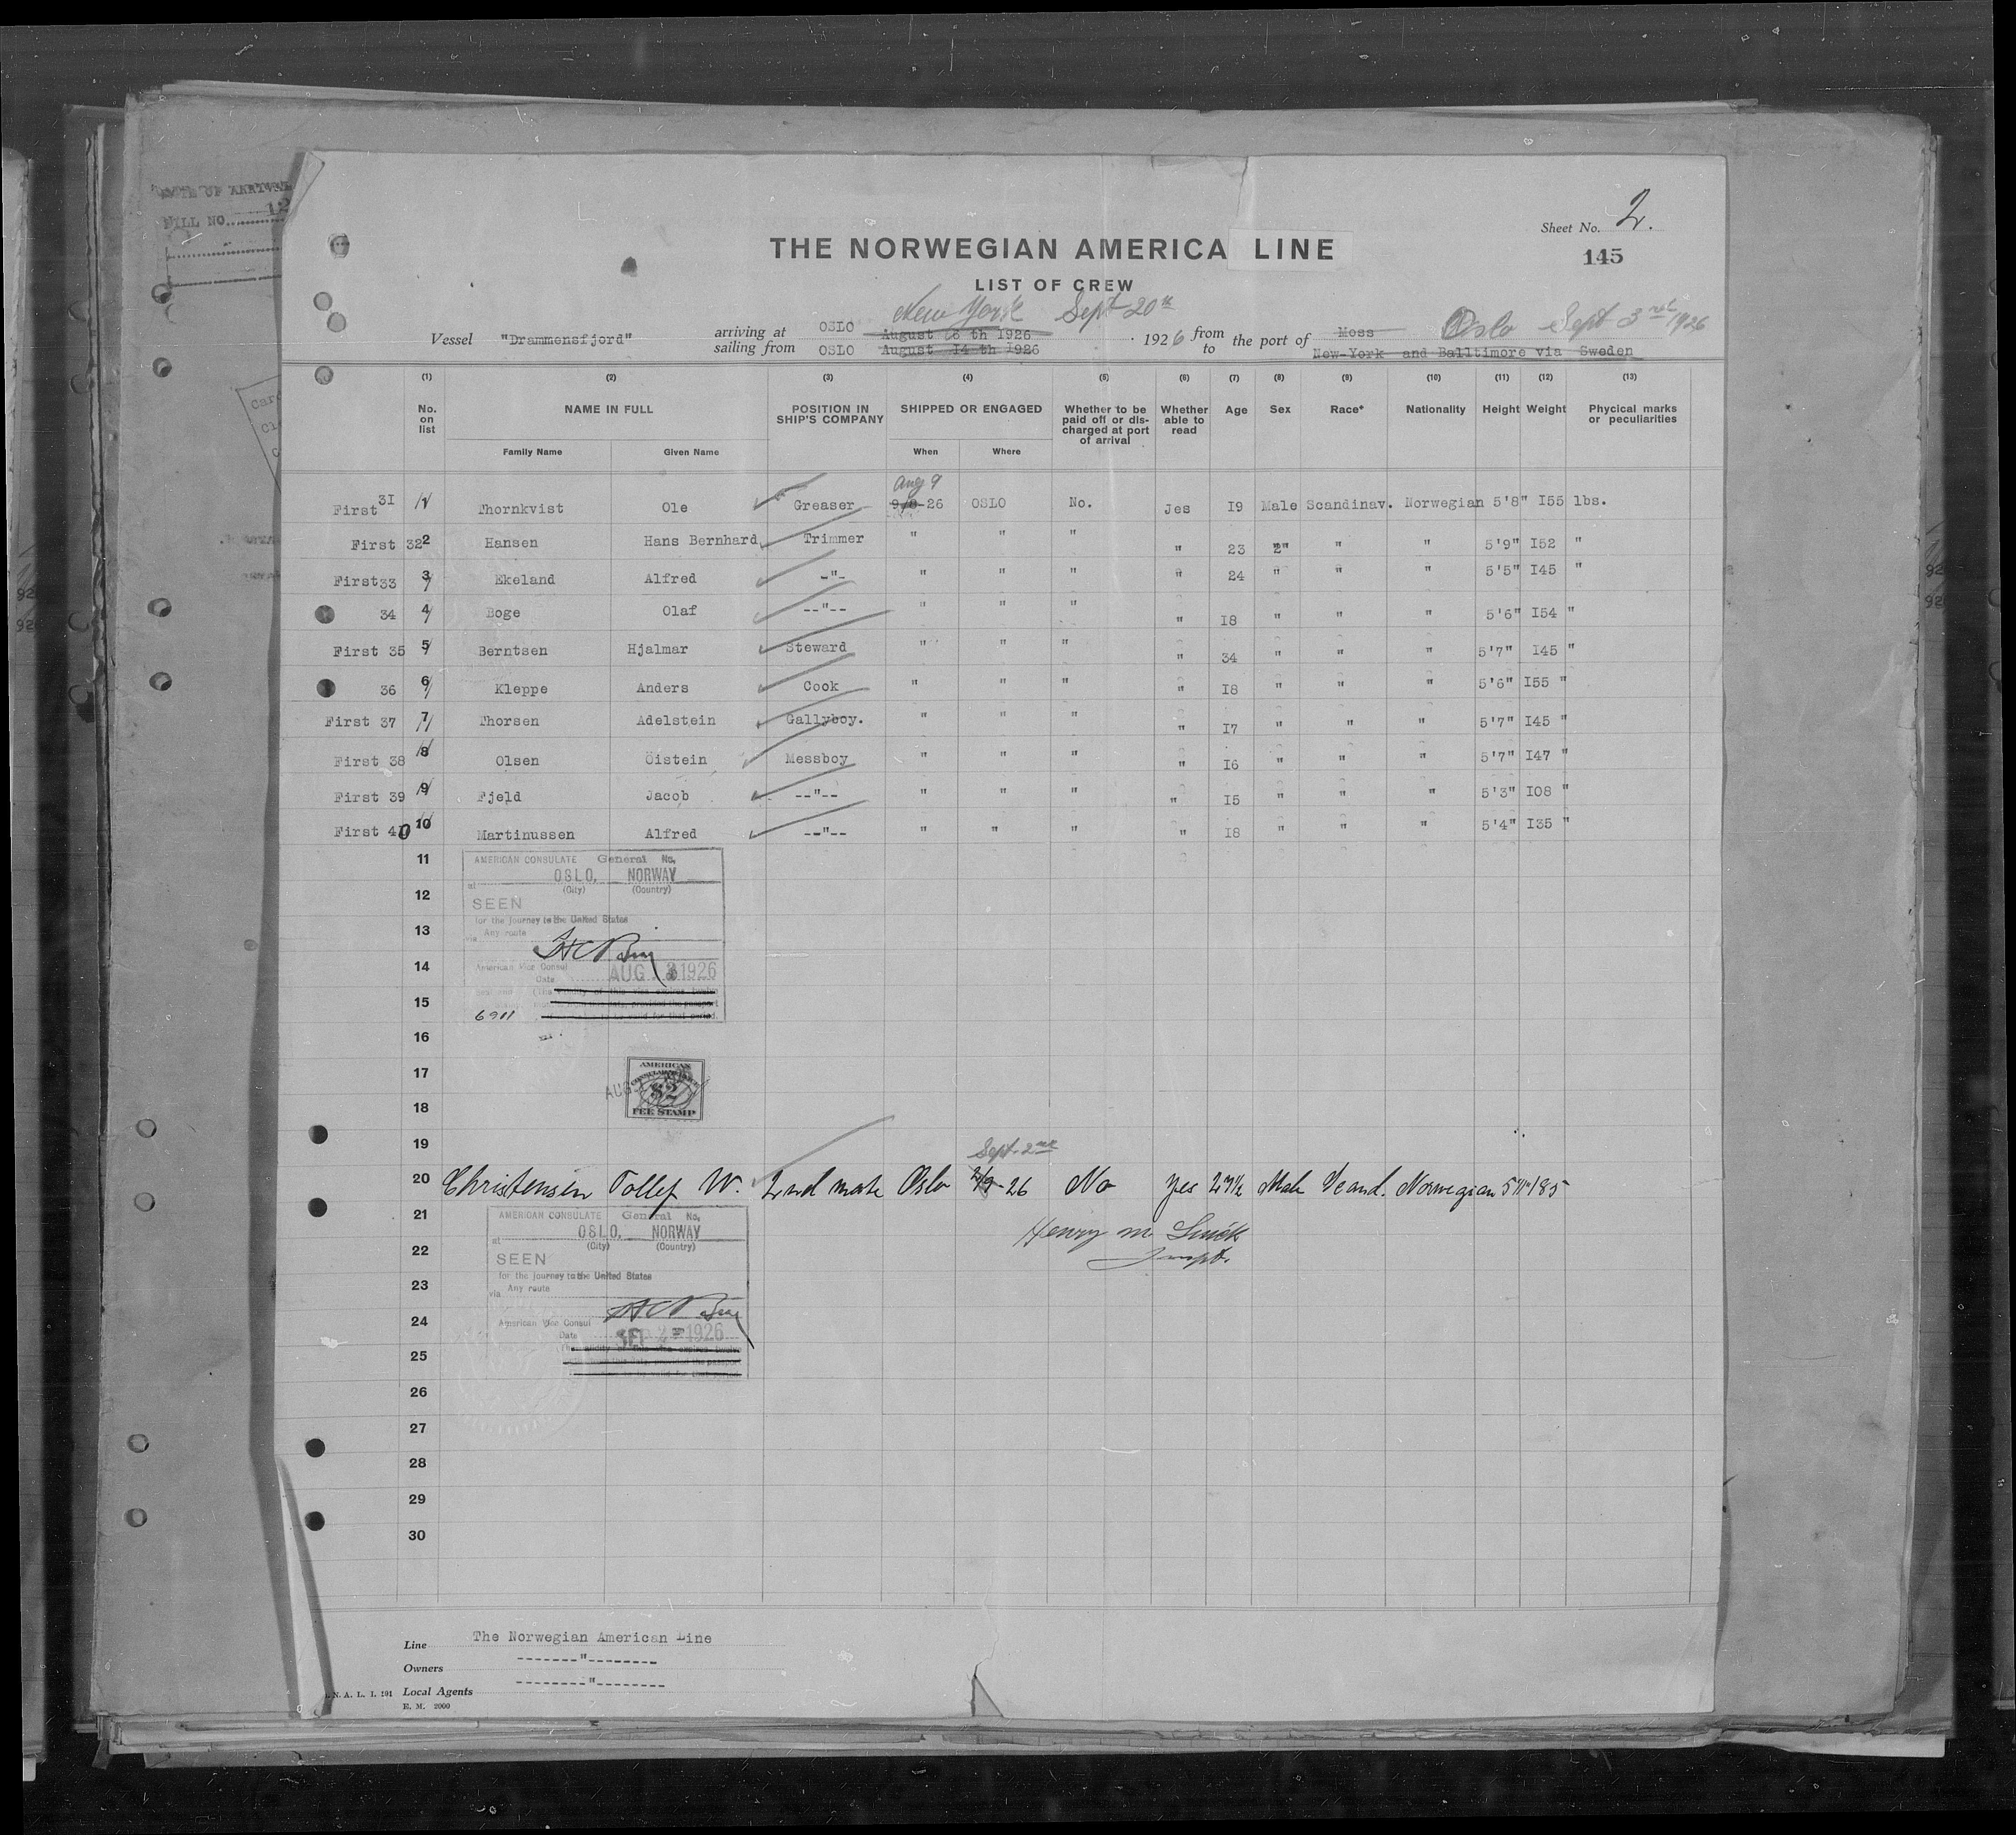 Sheet No. 2.
145
THE NORWEGIAN AMERICA LINE
LIST OF CREW
New York Sept 20th
Vessel "Drammensfjord" arriving at OSLO August 6 th 1926 1926 from the port of Moss Oslo Sept 3rd 1926
sailing from OSLO August 14 th 1926 to New-York and Balltimore via Sweden
(1) (2) (3) (4) (5) (6) (7) (8) (9) (10) (11) (12) (13)
No. on list NAME IN FULL POSITION IN SHIP'S COMPANY SHIPPED OR ENGAGED Whether to be paid off or discharged at port of arrival Whether able to read Age Sex Race* Nationality Height Weight Phycical marks or peculiarities
Family Name Given Name When Where
Aug 9
First 3I 1 Thornkvist Ole Greaser 9/8-26 OSLO No. Jes I9 Male Scandinav. Norwegian 5'8" I55 lbs.
First 32 2 Hansen Hans Bernhard Trimmer " " " " 23 " " " 5'9" I52 "
First 33 3 Ekeland Alfred -"- " " " " 24 " " " 5'5" I45 "
34 4 Boge Olaf --"-- " " " " I8 " " " 5'6" I54 "
First 35 5 Berntsen Hjalmar Steward " " " " 34 " " " 5'7" I45 "
36 6 Kleppe Anders Cook " " " " I8 " " " 5'6" I55 "
First 37 7 Thorsen Adelstein Gallyboy. " " " " I7 " " " 5'7" I45 "
First 38 8 Olsen Öistein Messboy " " " " I6 " " " 5'7" I47 "
First 39 9 Fjeld Jacob --"-- " " " " I5 " " " 5'3" I08 "
First 40 10 Martinussen Alfred --"-- " " " " I8 " " " 5'4" I35 "
11
AMERICAN CONSULATE General No.
at OSLO, NORWAY
(City) (Country)
12
SEEN
for the journey to the United States
13
via Any route
14
American Vice Consul
Date AUG 1926
15
6911
16
17
AMERICAN
$2
FEE STAMP
AUG
18
19
Sept. 2nd
20 Christensen Tollef W. 2nd mate Oslo 2/9-26 No yes 27½ Male Scand. Norwegian 5'11" 185
21
AMERICAN CONSULATE General No.
at OSLO, NORWAY
(City) (Country)
Henry M
Inspt.
22
SEEN
for the journey to the United States
23
via Any route
24
American Vice Consul
Date SEP 2 - 1926
25
26
27
28
29
30
Line The Norwegian American Line
Owners -------"--------
Local Agents --------"--------
N. A. L. I. 101
E. M. 2000
DATE OF ARRIVAL
FILL NO. 12